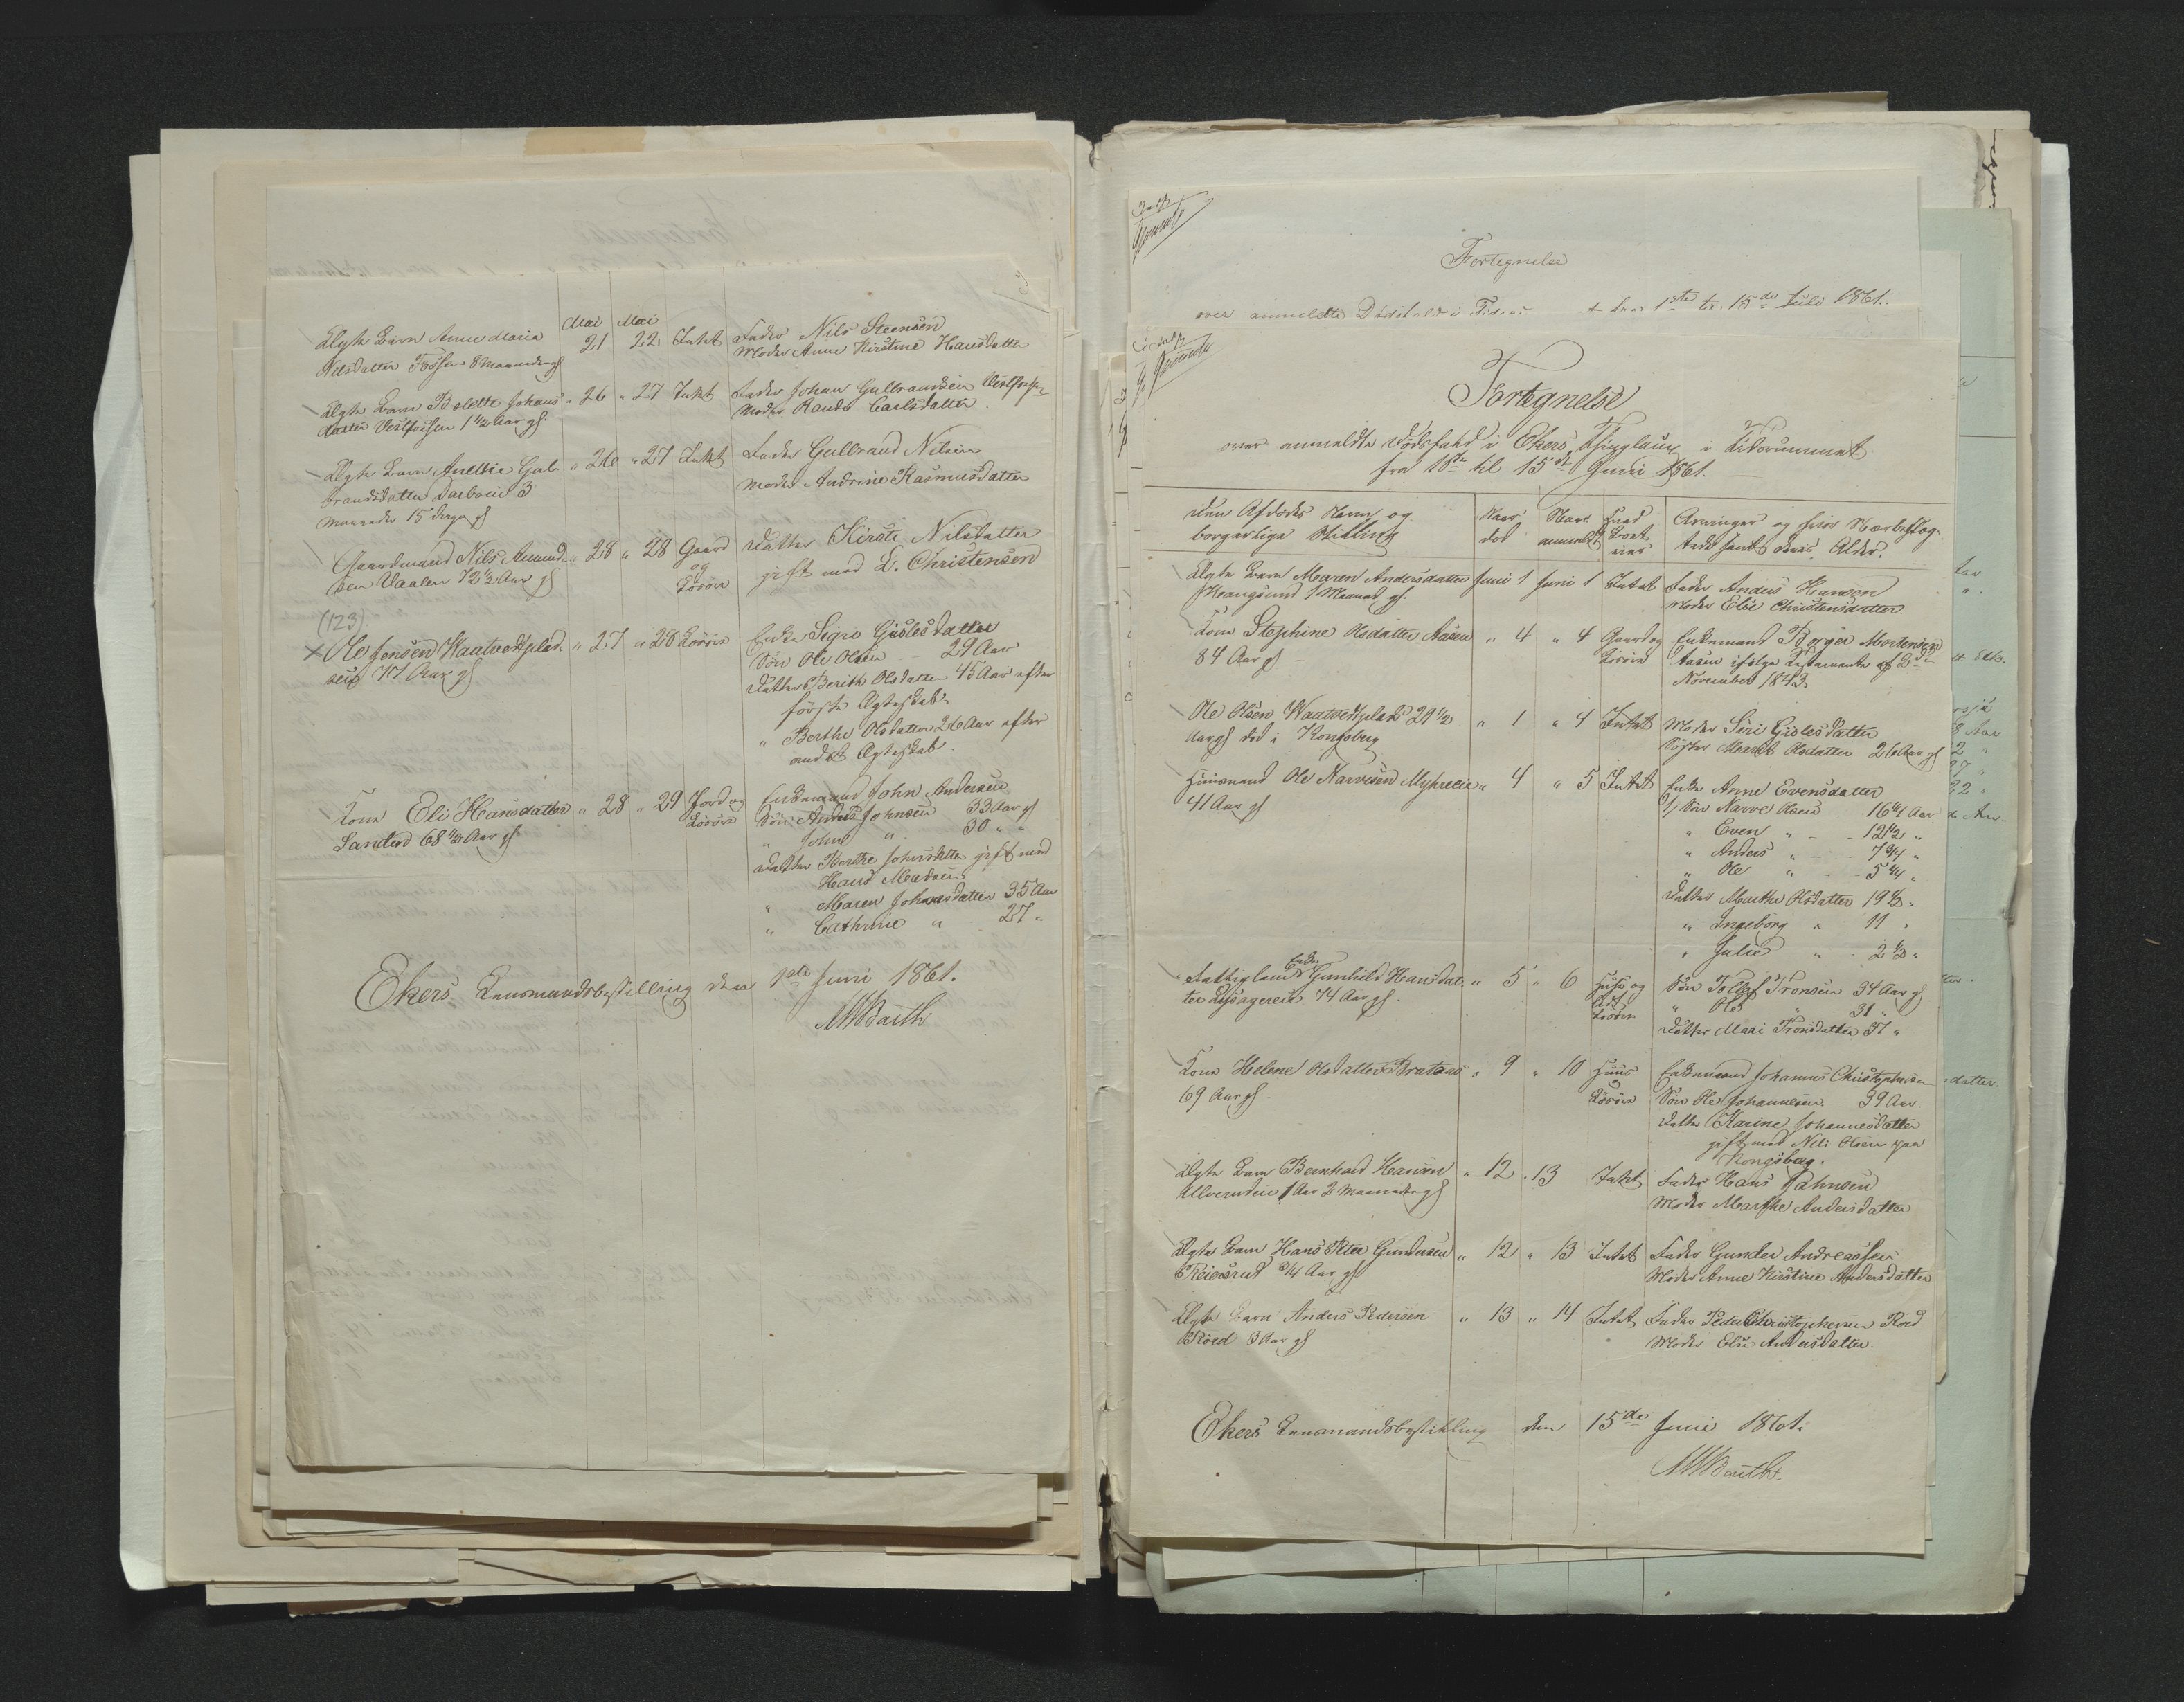 Mai Mai
Ægte Barn Anne Maria 21 22 Intet Fader Nils Steensen
Nilsdatter Fossen 8 Maaneder gl Moder Anne Kirstine Hansdatter
Ægte Barn Bolette Johans " 26 " 27 Intet Fader Johan Gulbrandsen Vestfossen
datter Vestfossen 1 1/2 Aar gl. Moder Randi Carlsdatter.
Ægte Barn Anette Gul " 26 " 27 Intet Fader Gulbrand Nilsen
brandsdatter Darboeie 3 Moder Andrine Rasmusdatter
Maaneder 15 Dage gl
Gaardmand Nils Amund " 28 " 28 Gaard Datter Kirsti Nilsdatter
sen Vaalen 72 1/2 Aar gl og gift med L. Christensen
Løsøre
(123)
× Ole Jensen Waatvedtplad " 27 " 28 Løsøre Enke Sigri Gislesdatter
sen 77 Aar gl Søn Ole Olsen 29 Aar
Datter Berith Olsdatter 45 Aar efter
første Ægteskab.
" Berthe Olsdatter 26 Aar efter
andet Ægteskab.
Kone Eli Hansdatter " 28 " 29 Jord og Enkemand John Andersen
Sanden 68 1/2 Aar gl. Løsøre Søn Anders Johnsen 33 Aar gl
" John " 30 " "
Datter Berthe Johnsdatter gift med
Hans Madsen
" Maren Johnsdatter 35 Aar
" Cathrine " 27 "
Ekers Lensmandsbestilling den 1ste Juni 1861.
MWBarth
Fortegnelse
over anmeldte Dødsfald i fra 1ste til 15de Juli 1861.
Fortegnelse
over anmeldte Dødsfald i Ekers Thinglaug i Tidsrummet
fra 1ste til 15de Juni 1861.
Den Afdødes Navn og Naar Naar Hvad Arvinger og hvis Nærbeslæg-
borgerlige Stilling død anmeldt Boet tede samt deres Alder.
eier
Ægte Barn Maren Andersdatter Juni 1 Juni 1 Intet Fader Anders Hansen
1 Maaned gl. Moder Elie Christensdatter
Kone Stephine Olsdatter Aasen " 4 " 4 Gaard og Enkemand Børger Mortensen
84 Aar gl Løsøre Aasen ifølge Testamente af 3die
November 1843.
Ole Olsen Waatvedtplads 29 1/2 " 1 " 4 Intet Moder Siri Gislesdatter
Aar gl død i Kongsberg Søster Marthe Olsdatter 26 Aar gl
Huusmand Ole Narvesen Myhreeie " 4 " 5 Intet Enke Anne Evensdatter
41 Aar gl Søn Narve Olsen 16 1/4 Aar
" Even " 12 1/2 "
" Anders " 7 3/4 "
" Ole " 5 1/4 "
Datter Marthe Olsdatter 19 1/2 "
" Ingeborg " 11 "
" Julie " 2 1/2 "
Enke
Fattiglem Gunhild Hansdat " 5 " 6 Huus og Søn Tollef Tronsen 34 Aar gl
ter 74 Aar gl. lidt " Ole " 31 "
Løsøre Datter Mari Tronsdatter 37 "
Kone Helene Olsdatter Brataas " 9 " 10 Huus Enkemand Johannes Christophersen
69 Aar gl. og Søn Ole Johannesen 39 Aar
Løsøre Datter Karine Johannesdatter
gift med Nils Olsen paa
Kongsberg.
Ægte Barn Bernhard Hansen " 12 " 13 Intet Fader Hans Pahnsen
Ulverudeie 1 Aar 2 Maaneder gl Moder Marthe Andersdatter
Ægte Barn Hans Peter Gundersen " 12 " 13 Intet Fader Gunder Andreassen
Reiersrud 3/4 Aar gl Moder Anne Kirstine Andersdatter
Ægte Barn Anders Pedersen " 13 " 14 Intet Fader Peder Christophersen Röed
Röed 3 Aar gl Moder Elsi Andersdatter.
Ekers Lensmandsbestilling den 15de Juni 1861.
MWBarth.